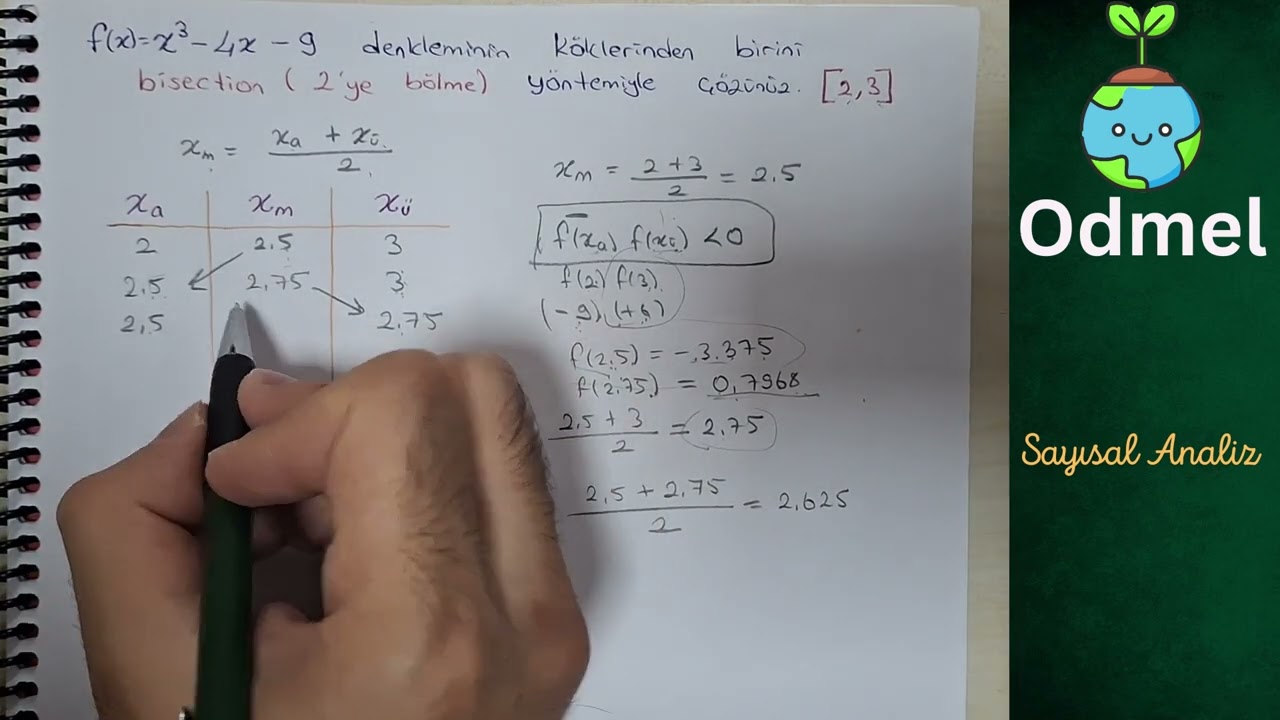 f(x)=x³-4x-9 denkleminin köklerinden birini
bisection (2'ye bölme) yöntemiyle çözünüz. [2,3]
xm = (xa + xü)/2
xa xm xü
2 2.5 3
2.5 2.75 3
2,5 2.75
xm = (2+3)/2 = 2.5
f(xa) f(xü) <0
f(2) f(3)
(-9) (+6)
f(2.5) = -3.375
f(2.75) = 0,7968
(2.5+3)/2 = 2.75
(2.5+2.75)/2 = 2.625
Odmel
Sayısal Analiz